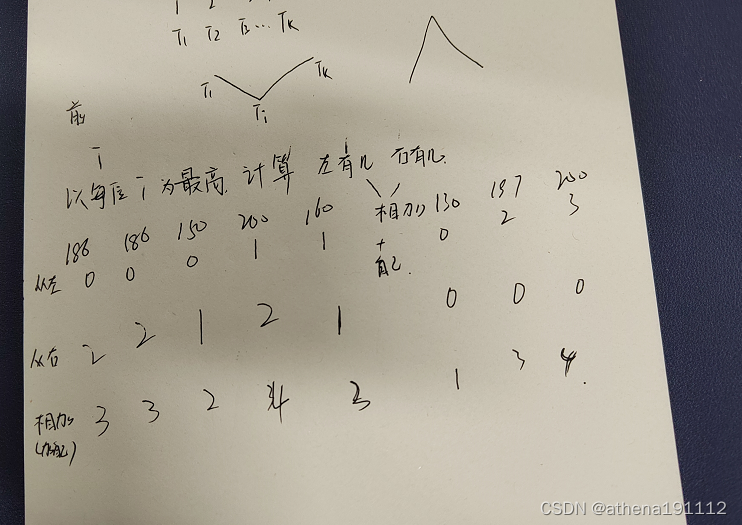 T1 T2 T3... TK
T1 Ti TK
前
i
以每位 i 为最高, 计算 左有几 右有几.
186 186 150 200 160 相加 130 197 200
+
自己.
从左 0 0 0 1 1 0 2 3
从右 2 2 1 2 1 0 0 0
相加 3 3 2 4 3 1 3 4.
CSDN @athena191112